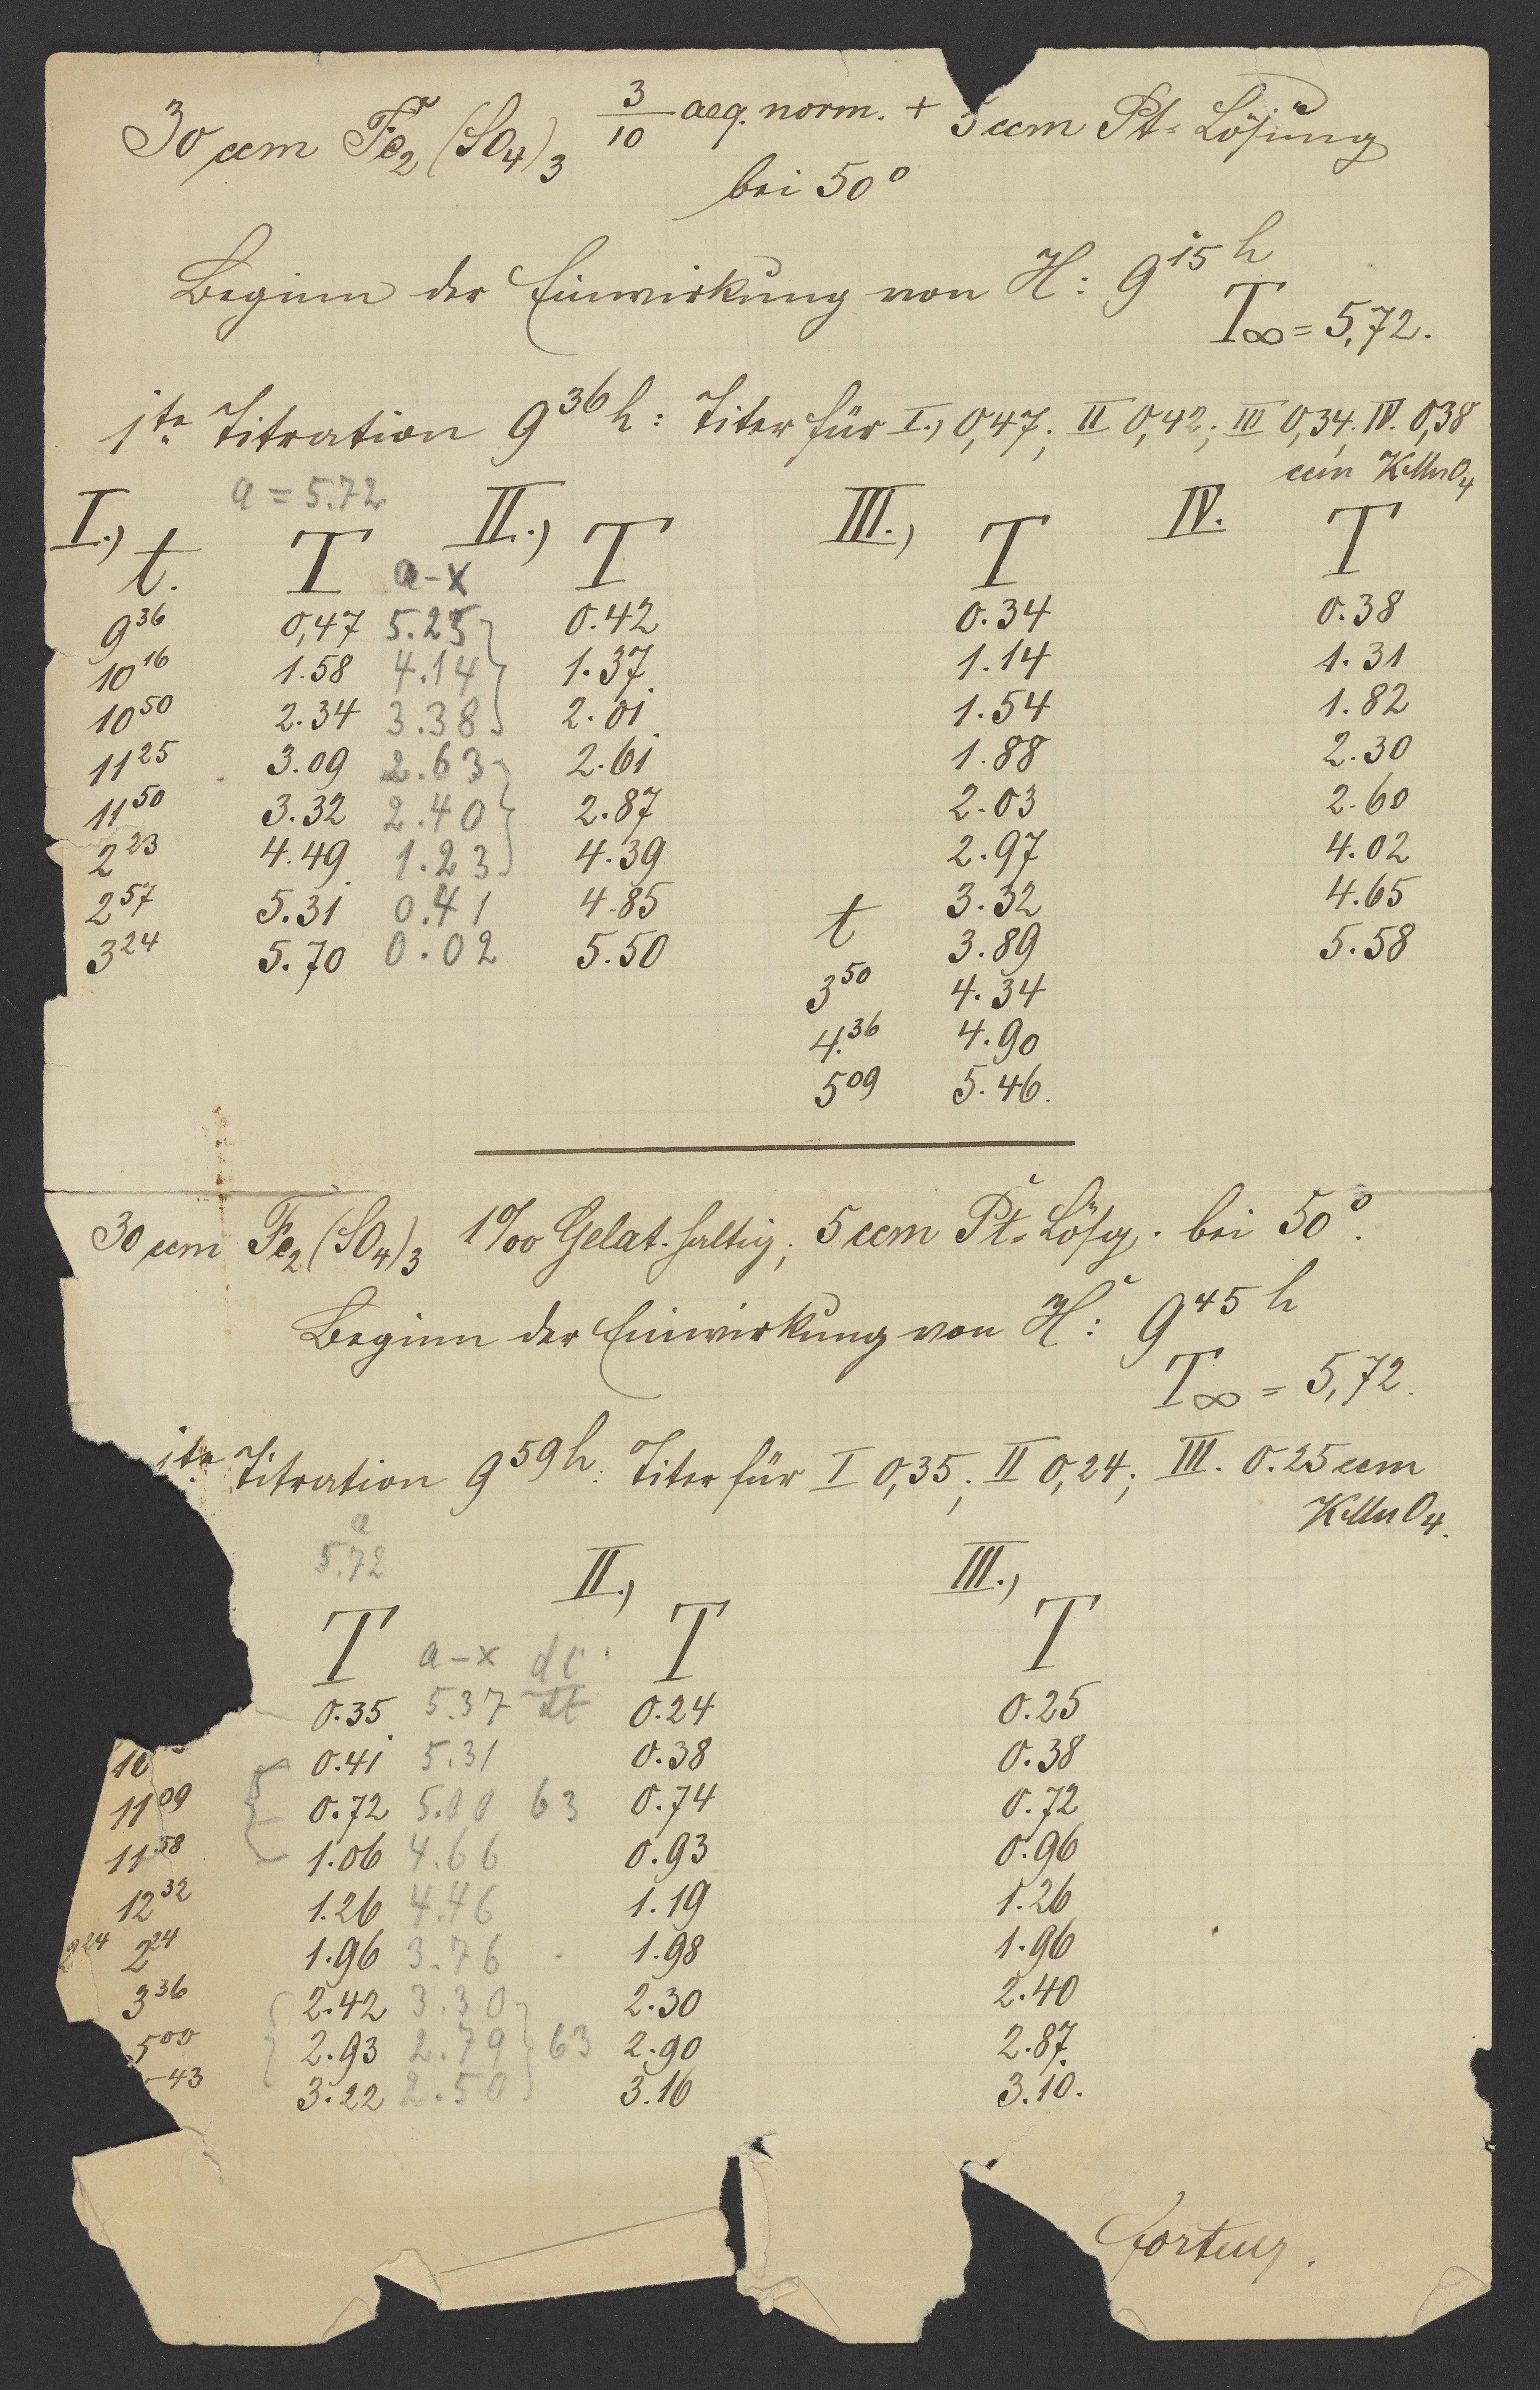 30 ccm Fe2(SO4)3 3/10 aeq. norm. + 5 ccm Pt-Lösung
bei 50°
Beginn der Einwirkung von H: 9 15 h
T∞ = 5,72.
1te Titration 9 36 h: Titer für I., 0,47; II 0,42; III 0,34. IV. 0,38
ccm KMnO4
I.) a = 5.72 II.) III.) IV.
t. T a-x T T T
9 36 0,47 5.25 0.42 0.34 0.38
10 16 1.58 4.14 1.37 1.14 1.31
10 50 2.34 3.38 2.01 1.54 1.82
11 25 3.09 2.63 2.61 1.88 2.30
11 50 3.32 2.40 2.87 2.03 2.60
2 23 4.49 1.23 4.39 2.97 4.02
2 57 5.31 0.41 4.85 3.32 4.65
3 24 5.70 0.02 5.50 t 3.89 5.58
3 50 4.34
4 36 4.90
5 09 5.46.
30 ccm Fe2(SO4)3 1‰ Gelat. haltig; 5 ccm Pt-Lösg. bei 50°.
Beginn der Einwirkung von H: 9 45 h
T∞ = 5,72.
1te Titration 9 59 h: Titer für I 0,35; II 0,24; III. 0.25 ccm
KMnO4.
a
5.72 II.) III.)
T a-x dc/dt T T
0.35 5.37 0.24 0.25
10 0.41 5.31 0.38 0.38
11 09 0.72 5.00 63 0.74 0.72
11 58 1.06 4.66 0.93 0.96
12 32 1.26 4.46 1.19 1.26
2 24 2 24 1.96 3.76 1.98 1.96
3 36 2.42 3.30 2.30 2.40
5 00 2.93 2.79 63 2.90 2.87
43 3.22 2.50 3.16 3.10.